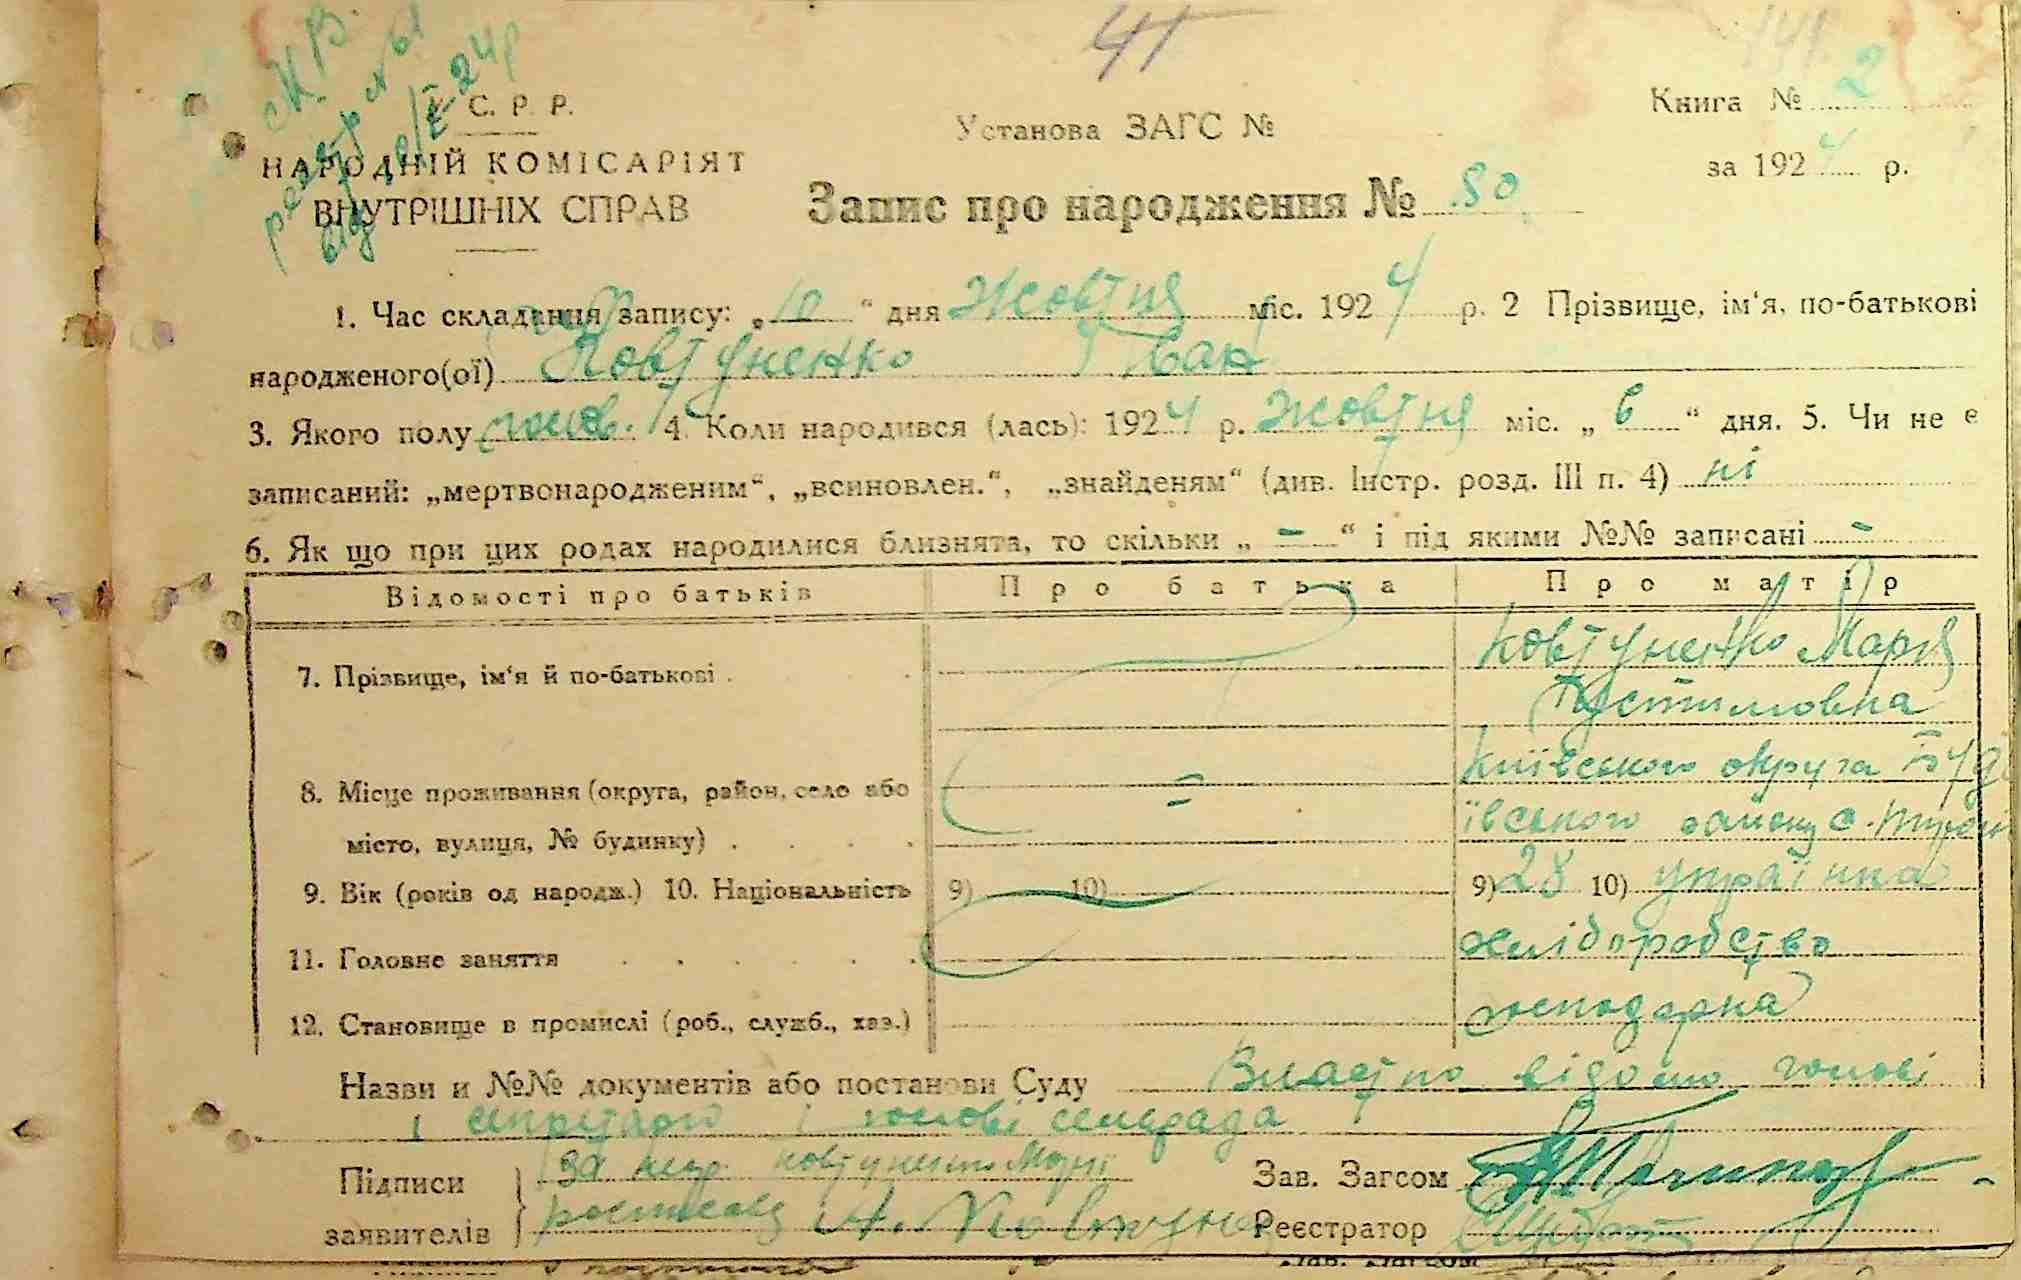 41
Книга № 2
С. Р. Р.
Установа ЗАГС №
за 1924 р.
НАРОДНІЙ КОМІСАРІЯТ
ВНУТРІШНІХ СПРАВ
Запис про народження № 80
1. Час складання запису: „10“ дня Жовтня міс. 1924 р. 2 Прізвище, ім‘я, по-батькові
народженого(ої) Ковтуненко Іван
3. Якого полу чолов. 4. Коли народився (лась): 1924 р. Жовтня міс. „6“ дня. 5. Чи не є
записаний: „мертвонародженим“, „всиновлен.“, „знайденям“ (див. Інстр. розд. III п. 4) ні
6. Як що при цих родах народилися близнята, то скільки „ - “ і під якими №№ записані -
Відомості про батьків Про батька Про матір
7. Прізвище, ім‘я й по-батькові . Ковтуненко Марія
Устимовна
8. Місце проживання (округа, район, село або = Київського округа Буд
місто, вулиця, № будинку) . . . . ївського району с.
9. Вік (років од народж.) 10. Національність 9) 10) 9) 28 10) українка
11. Головне заняття . . . . . . хліборобство
12. Становище в промислі (роб., служб., хаз.) господарка
Назви и №№ документів або постанови Суду Властно відомо голові
і секретарю і голові сельрада
Підписи за негр. Ковтуненко Марії Зав. Загсом
заявителів А. Ковтуне Реєстратор